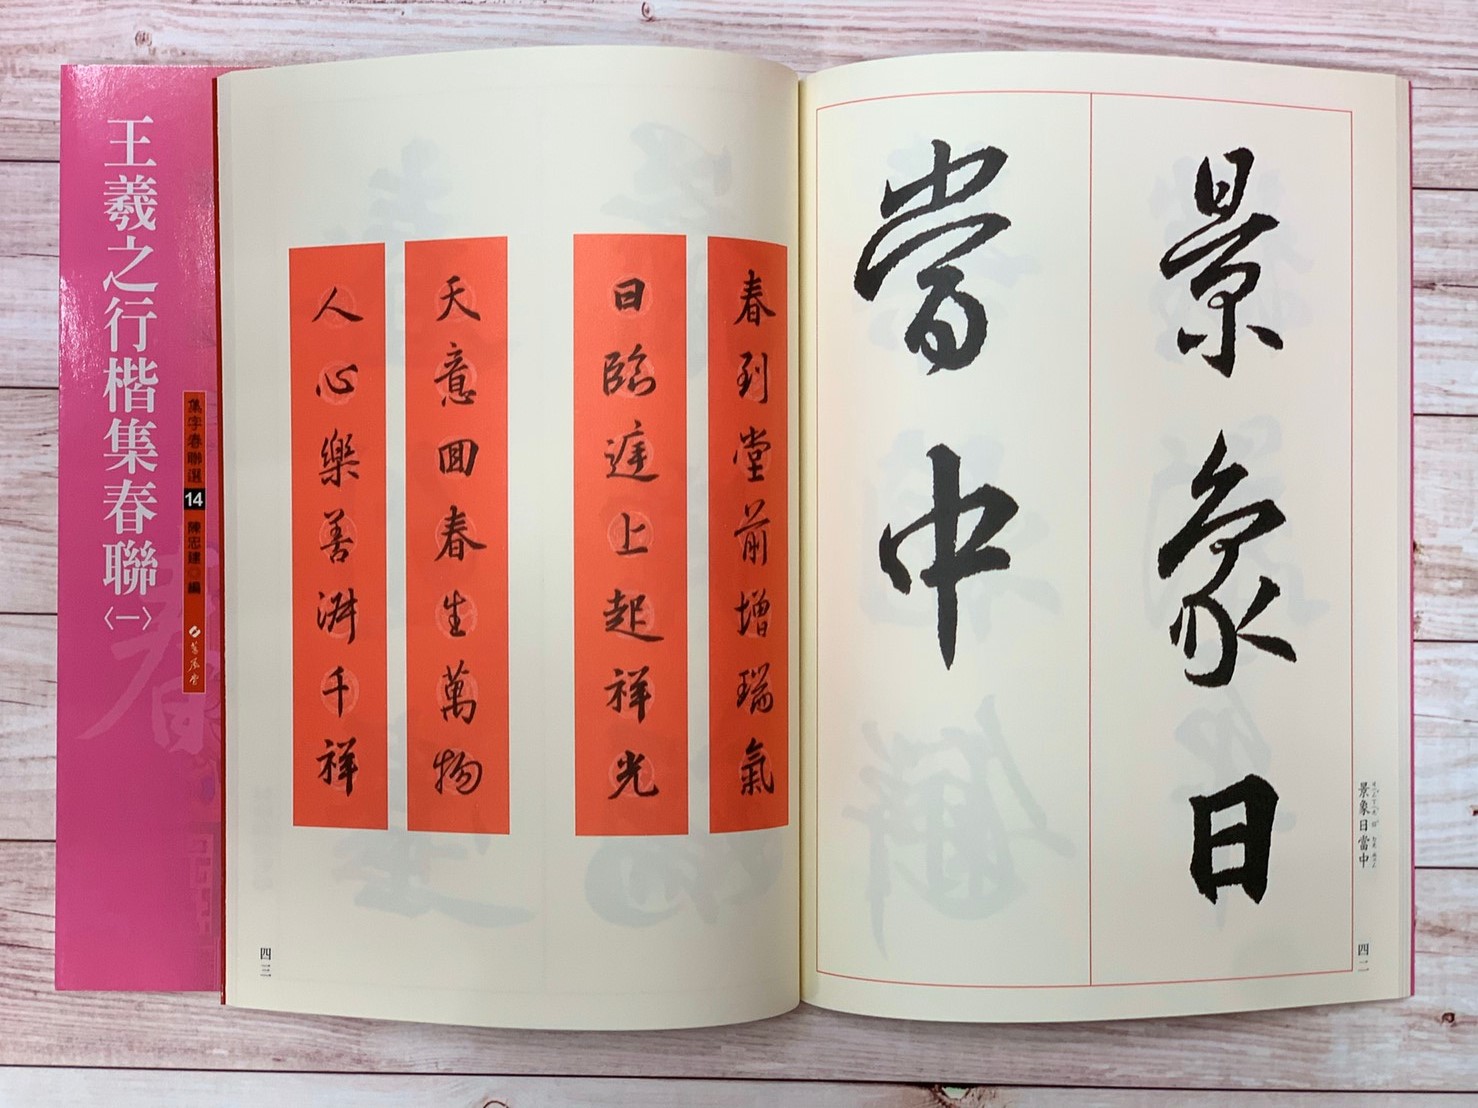 王羲之行楷集春聯〈一〉
集字春聯選 14 陳忠建 編
蕙風堂
景象日
當中
景象日當中
四二
春到堂前增瑞氣
日臨庭上起祥光
天意回春生萬物
人心樂善千祥
四三